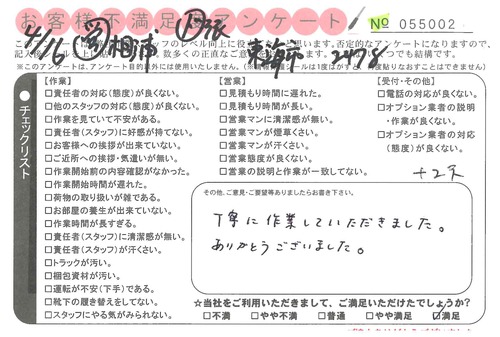 お客様不満足アンケート
№ 055002
4/16 相浦 2478
※このアンケートは、アンケート目的以外には使用いたしません。
チェックリスト
【作業】
□責任者の対応(態度)が良くない。
□他のスタッフの対応(態度)が良くない。
□作業を見ていて不安がある。
□責任者(スタッフ)に好感が持てない。
□お客様への挨拶が出来ていない。
□ご近所への挨拶・気遣いが無い。
□作業開始前の内容確認がなかった。
□作業開始時間が遅れた。
□荷物の取り扱いが雑である。
□お部屋の養生が出来ていない。
□作業時間が長すぎる。
□責任者(スタッフ)に清潔感が無い。
□責任者(スタッフ)が汗くさい。
□トラックが汚い。
□梱包資材が汚い。
□運転が不安(下手)である。
□靴下の履き替えをしてない。
□スタッフにやる気がみられない。
【営業】
□見積もり時間に遅れた。
□見積もり時間が長い。
□営業マンに清潔感が無い。
□営業マンが煙草くさい。
□営業マンが汗くさい。
□営業態度が良くない。
□営業の説明と作業が一致してない。
【受付・その他】
□電話の対応が良くない。
□オプション業者の説明
・作業が良くない。
□オプション業者の対応
(態度)が良くない。
+2天
その他、ご意見・ご要望等ありましたらお書き下さい。
丁寧に作業していただきました。
ありがとうございました。
☆当社をご利用いただきまして、ご満足いただけたでしょうか?
□不満 □やや不満 □普通 □やや満足 ☑満足